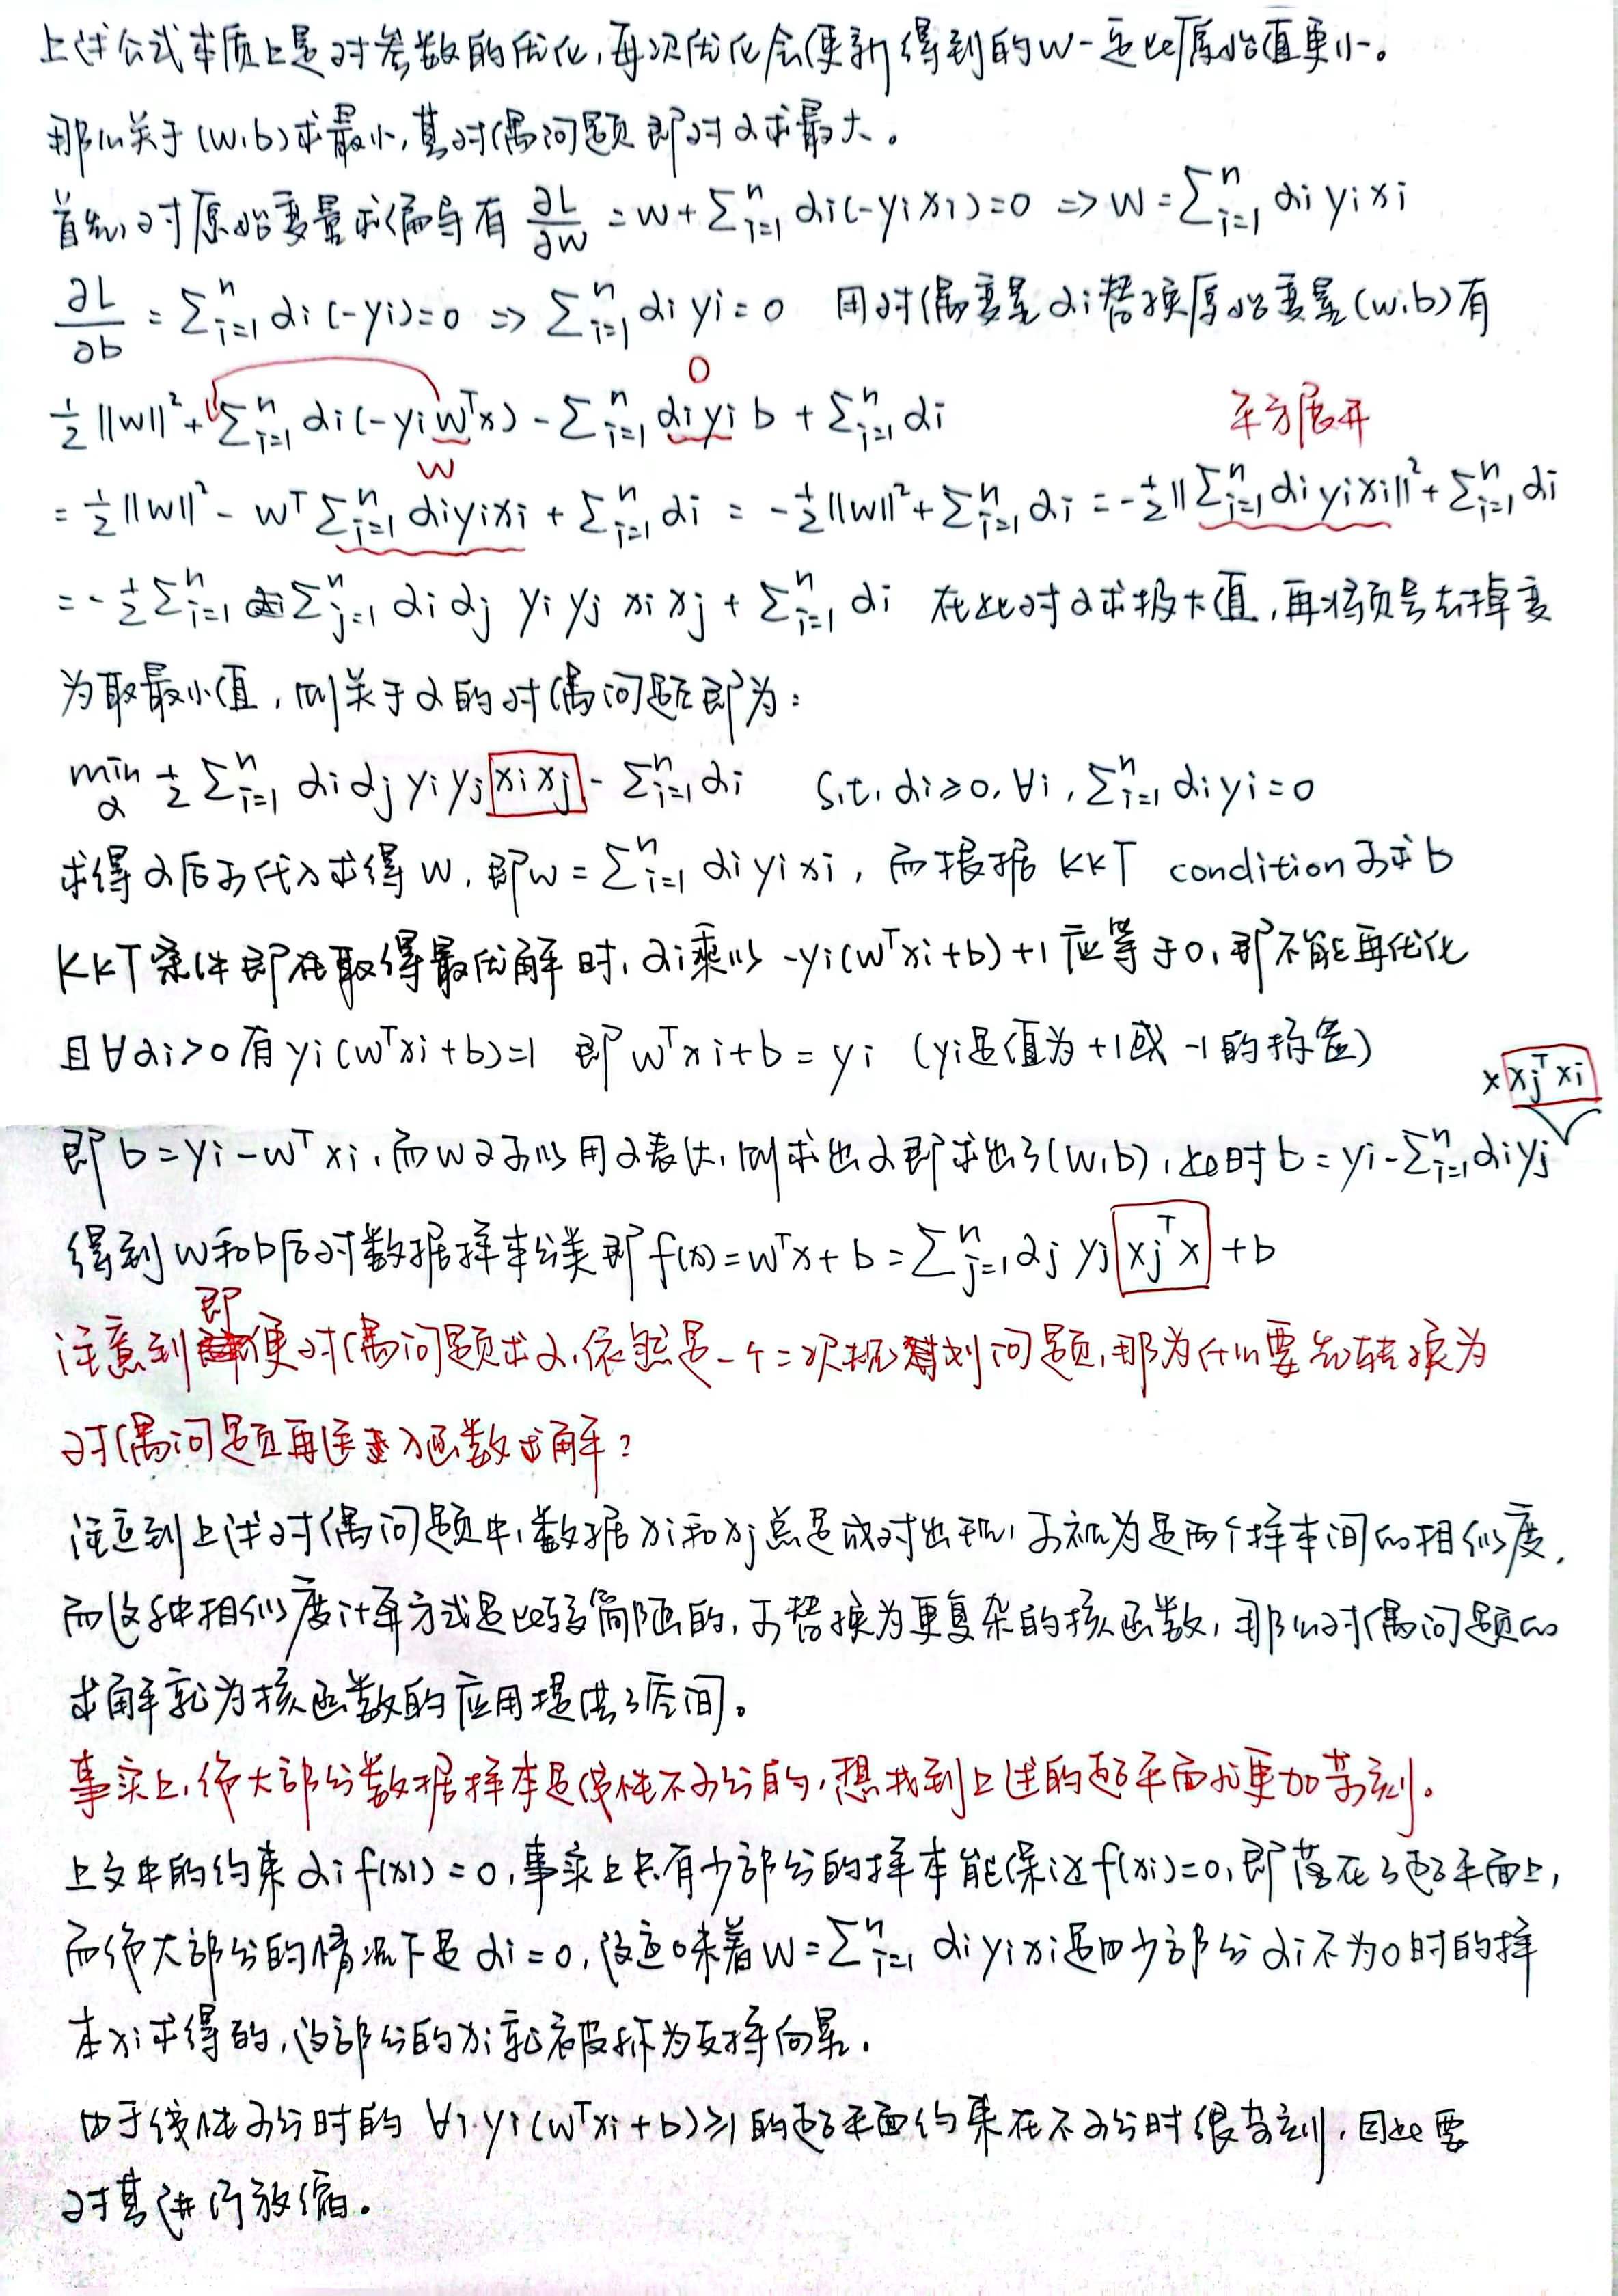 上述公式本质上是对参数的优化,每次优化会使新得到的w一定比原始值更小。
那么关于(w,b)求最小,其对偶问题即对α求最大。
首先,对原始变量求偏导有 ∂L/∂w = w + Σⁿᵢ₌₁ αi(-yixi)=0 ⇒ w = Σⁿᵢ₌₁ αi yi xi
∂L/∂b = Σⁿᵢ₌₁ αi(-yi)=0 ⇒ Σⁿᵢ₌₁ αi yi = 0 用对偶变量αi替换原始变量(w,b)有
0
½||w||² + Σⁿᵢ₌₁ αi(-yi wᵀx) - Σⁿᵢ₌₁ αi yi b + Σⁿᵢ₌₁ αi 平方展开
w
= ½||w||² - wᵀ Σⁿᵢ₌₁ αiyixi + Σⁿᵢ₌₁ αi = -½||w||² + Σⁿᵢ₌₁ αi = -½||Σⁿᵢ₌₁ αi yi xi||² + Σⁿᵢ₌₁ αi
= -½ Σⁿᵢ₌₁ Σⁿⱼ₌₁ αi αj yi yj xi xj + Σⁿᵢ₌₁ αi 在此对α求极大值,再将负号去掉变
为取最小值,则关于α的对偶问题即为:
min α ½ Σⁿᵢ₌₁ αi αj yi yj xi xj - Σⁿᵢ₌₁ αi s.t. αi≥0, ∀i, Σⁿᵢ₌₁ αi yi = 0
求得α后可代入求得w,即w = Σⁿᵢ₌₁ αi yi xi, 而根据 KKT condition可求b
KKT条件即在取得最优解时,αi乘以 -yi(wᵀxi+b)+1 应等于0,即不能再优化
且∀αi>0有yi(wᵀxi+b)=1 即 wᵀxi+b = yi (yi是值为+1或-1的标签)
x xjᵀ xi
即 b = yi - wᵀxi, 而w又可以用α表达,则求出α即求出了(w,b),此时b = yi - Σⁿᵢ₌₁ αi yj
得到w和b后对数据样本分类即 f(x) = wᵀx + b = Σⁿⱼ₌₁ αj yj xjᵀ x + b
即
注意到便对偶问题求α,依然是一个二次规划问题,那为什么要先转换为
对偶问题再函数求解?
注意到上述对偶问题中,数据xi和xj总是成对出现,可视为是两个样本间的相似度,
而这种相似度计算方式是比较简陋的,可替换为更复杂的核函数,那么对偶问题的
求解就为核函数的应用提供了空间。
事实上,绝大部分数据样本是线性不可分的,想找到上述的超平面就更加苛刻。
上文中的约束 αi f(xi) = 0,事实上只有少部分的样本能保证f(xi)=0,即落在了超平面上,
而绝大部分的情况下是 αi = 0, 这意味着w = Σⁿᵢ₌₁ αi yi xi是由少部分αi不为0时的样
本xi求得的,这部分的xi就被称为支持向量。
由于线性可分时的 ∀i. yi(wᵀxi+b)≥1的超平面约束在不可分时很苛刻,因此要
对其进行放缩。